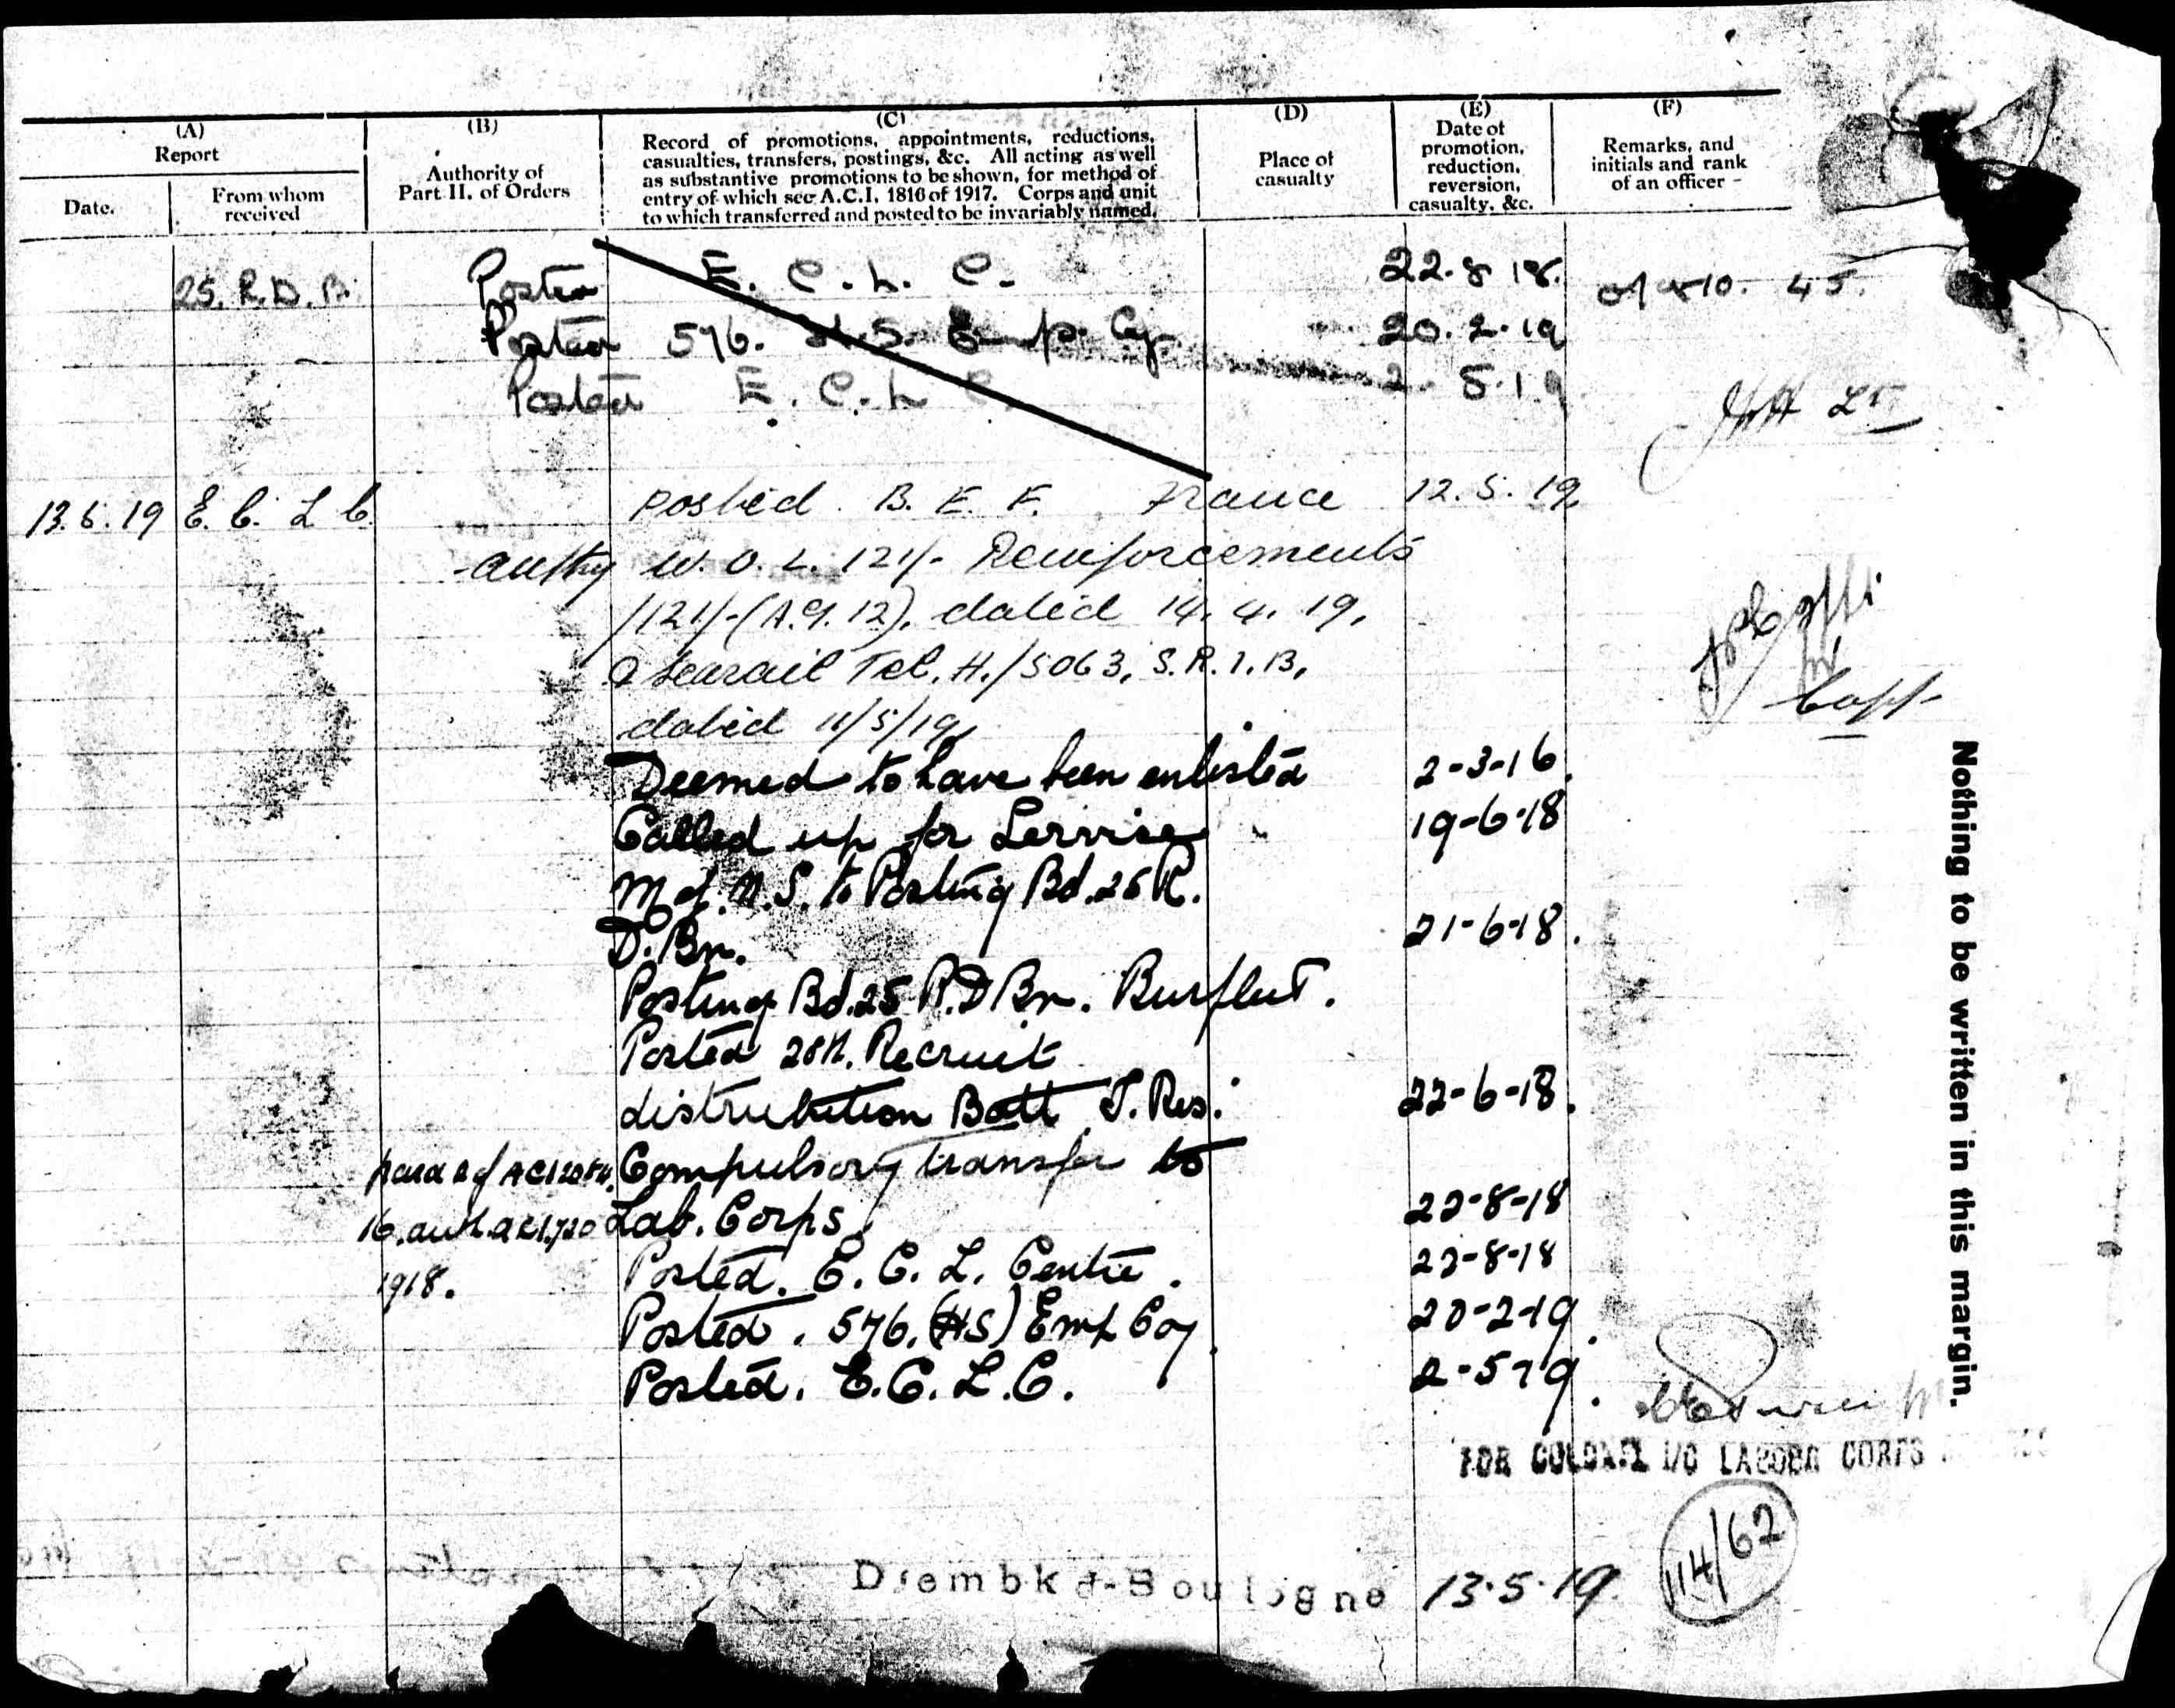 (A)
Report
Date.
From whom
received
(B)
Authority of
Part II. of Orders
(C)
Record of promotions, appointments, reductions,
casualties, transfers, postings, &c. All acting as well
as substantive promotions to be shown, for method of
entry of which see A.C.I. 1816 of 1917. Corps and unit
to which transferred and posted to be invariably named.
(D)
Place of
casualty
(E)
Date of
promotion,
reduction,
reversion,
casualty, &c.
(F)
Remarks, and
initials and rank
of an officer
25. R.D.B. Posted E. C. L. C. 22.8.18.
Posted 576. H.S. Emp. Coy. 20.2.19
Posted E. C. L C. 2.5.19
13.5.19 E. C. L C. posted B. E. F. France 12.5.19
authy W. O. L. 121/- Reinforcements
/121/- (A.G. 12), dated 14. 4. 19,
Tel. H./5063, S.R.1.B,
dated 11/5/19
Deemed to have been enlisted 2-3-16.
Called up for Service 19-6-18
M of. N.S. to Posting Bd. 25 R.
D. Bn. 21-6-18.
Posting Bd. 25 R.D Bn. Purfleet.
Posted 25th. Recruit
distribution Batt T. Res. 22-6-18.
para 2 of ACI 2084. Compulsory transfer to
16. auth. ACI. 720 Lab. Corps 22-8-18
1918. Posted. E. C. L. Centre. 22-8-18
Posted. 576. (HS) Emp Coy. 20-2-19.
Posted. E.C.L.C. 2-5-19.
FOR COLONEL I/C LABOUR CORPS
Disembkd-Boulogne 13.5.19.
114/62
Nothing to be written in this margin.